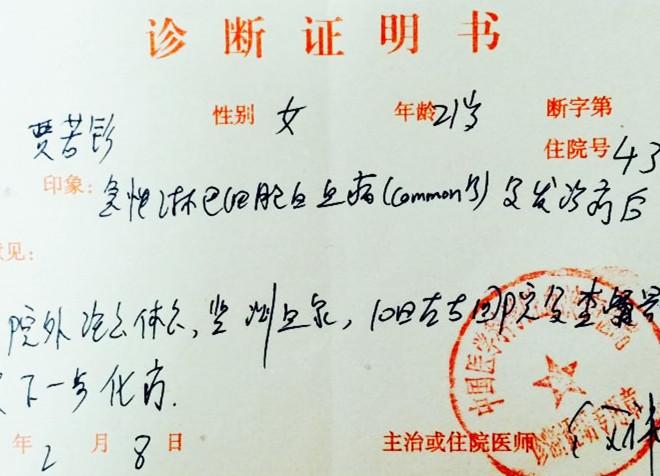 诊断证明书
贾若 性别 女 年龄 21岁 断字第
住院号 43
印象: 急性淋巴细胞白血病(Common型) 复发治疗后
意见:
院外 休息, 监测血象, 10日左右回院复查
下一步化疗.
年 2 月 8 日 主治或住院医师
中国医学